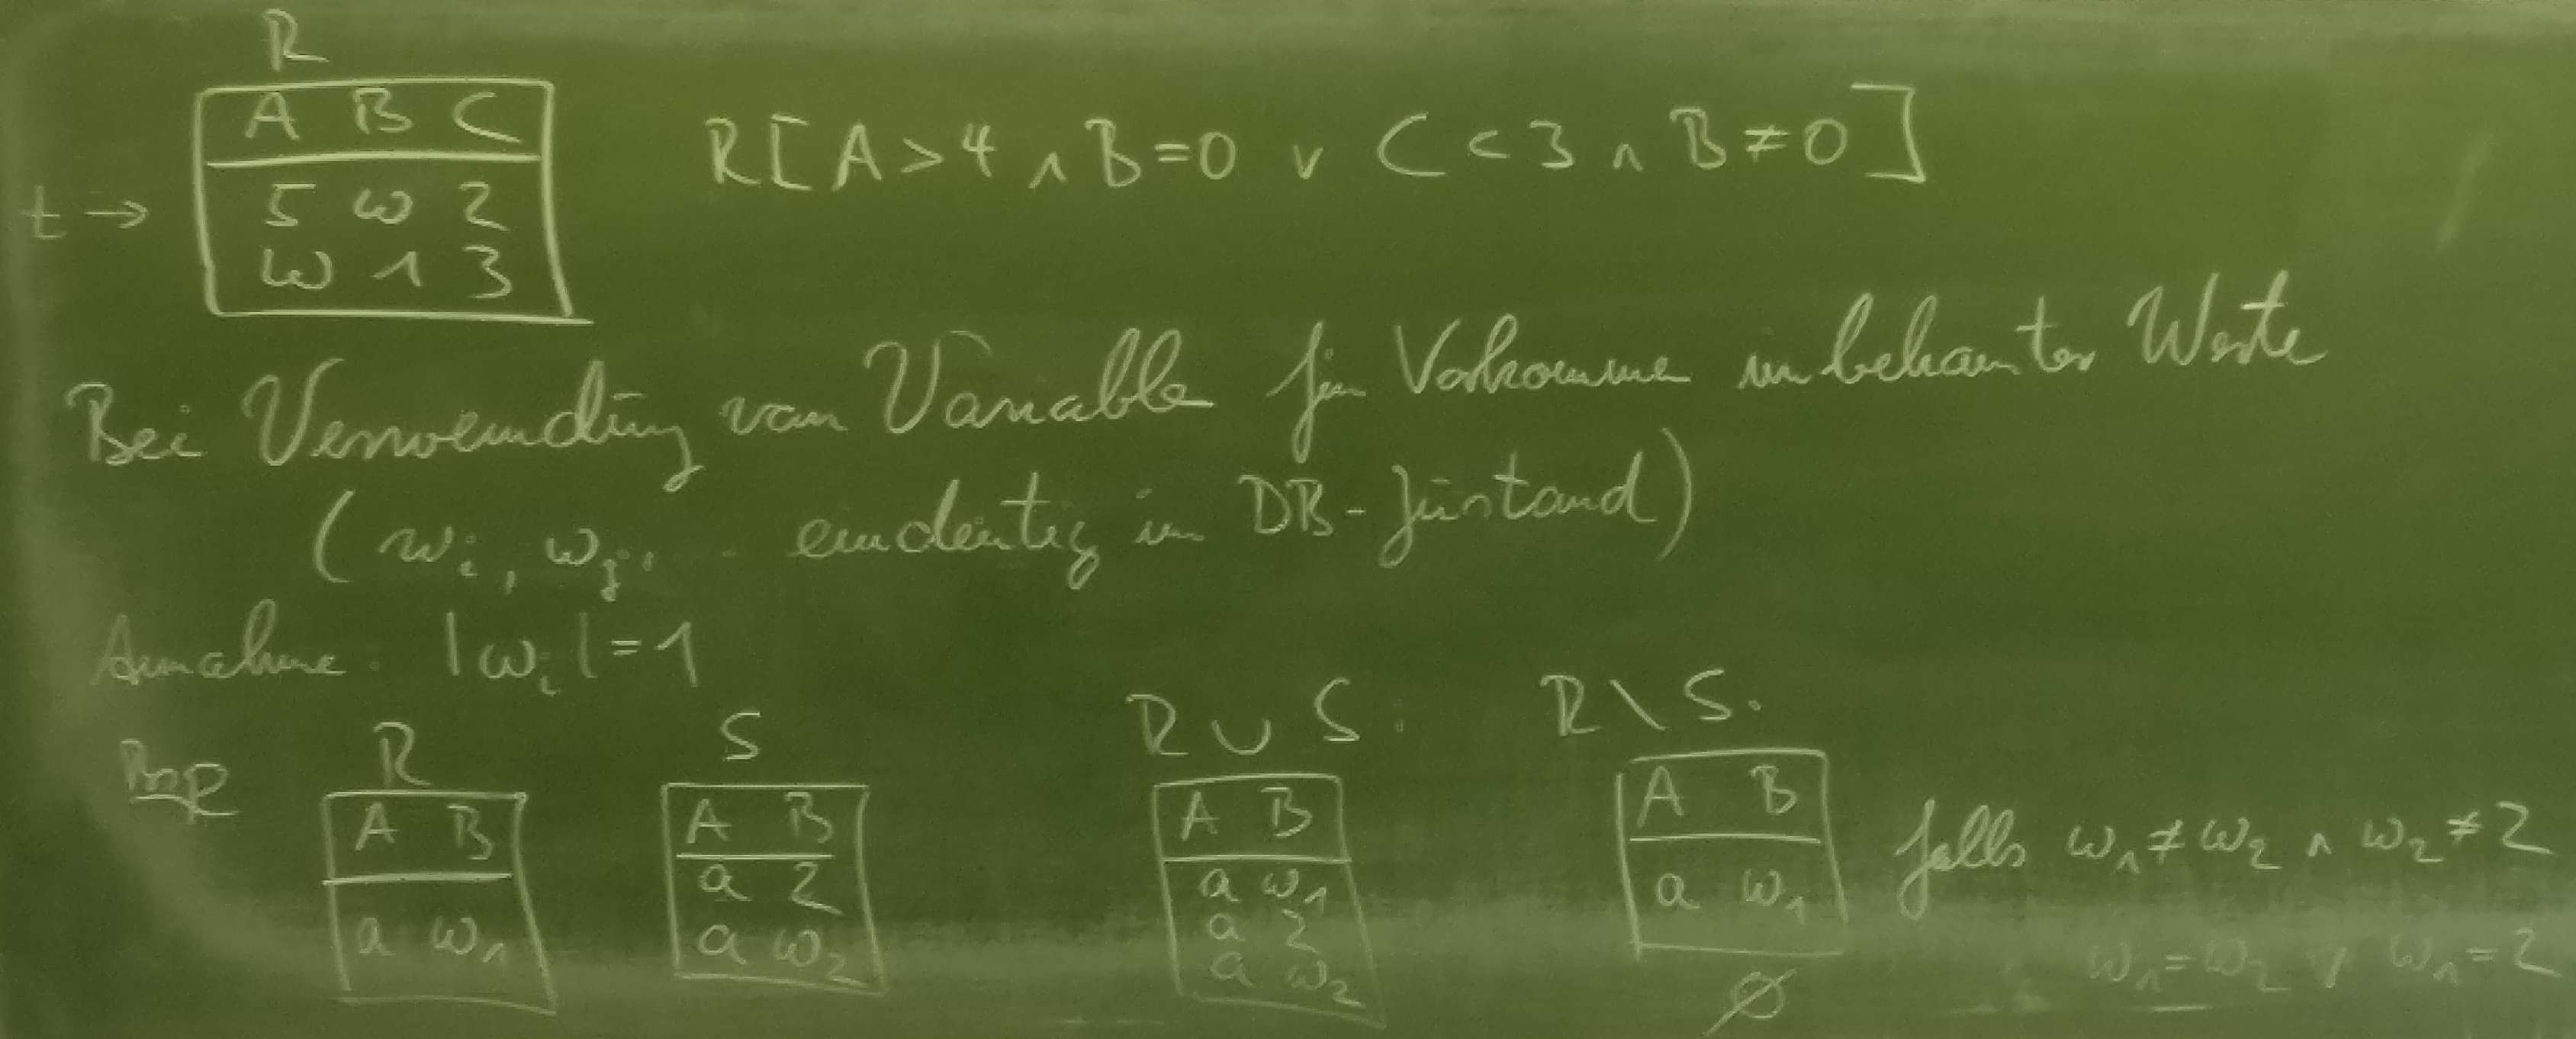 R
A B C
t → 5 ω 2
ω 1 3
R[A>4 ∧ B=0 ∨ C<3 ∧ B≠0]
Bei Verwendung von Variable für Vorkommen unbekannter Werte
(ωi, ωj... eindeutig im DB-Zustand)
Annahme: |ωi|=1
Bsp R S R ∪ S: R \ S:
A B
a ω1
A B
a 2
a ω2
A B
a ω1
a 2
a ω2
A B
a ω1
falls ω1≠ω2 ∧ ω2≠2
∅ ω1=ω2 ∨ ω1=2